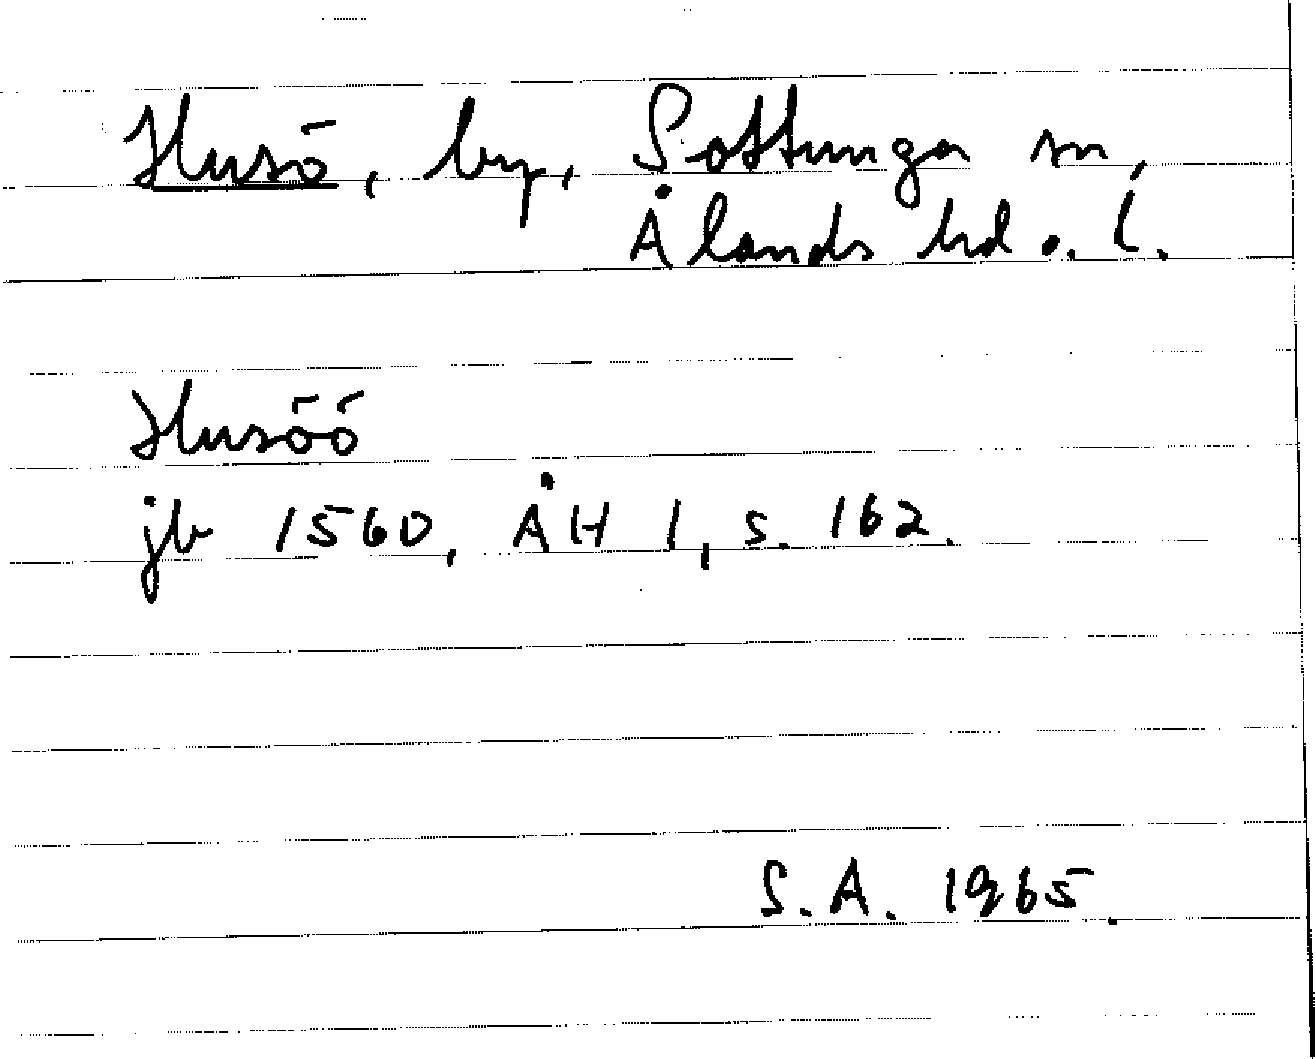 Husö, by, Sottunga sn,
Ålands hd o. l.
Husöö
jb 1560, ÅH 1, s. 162.
S.A. 1965.